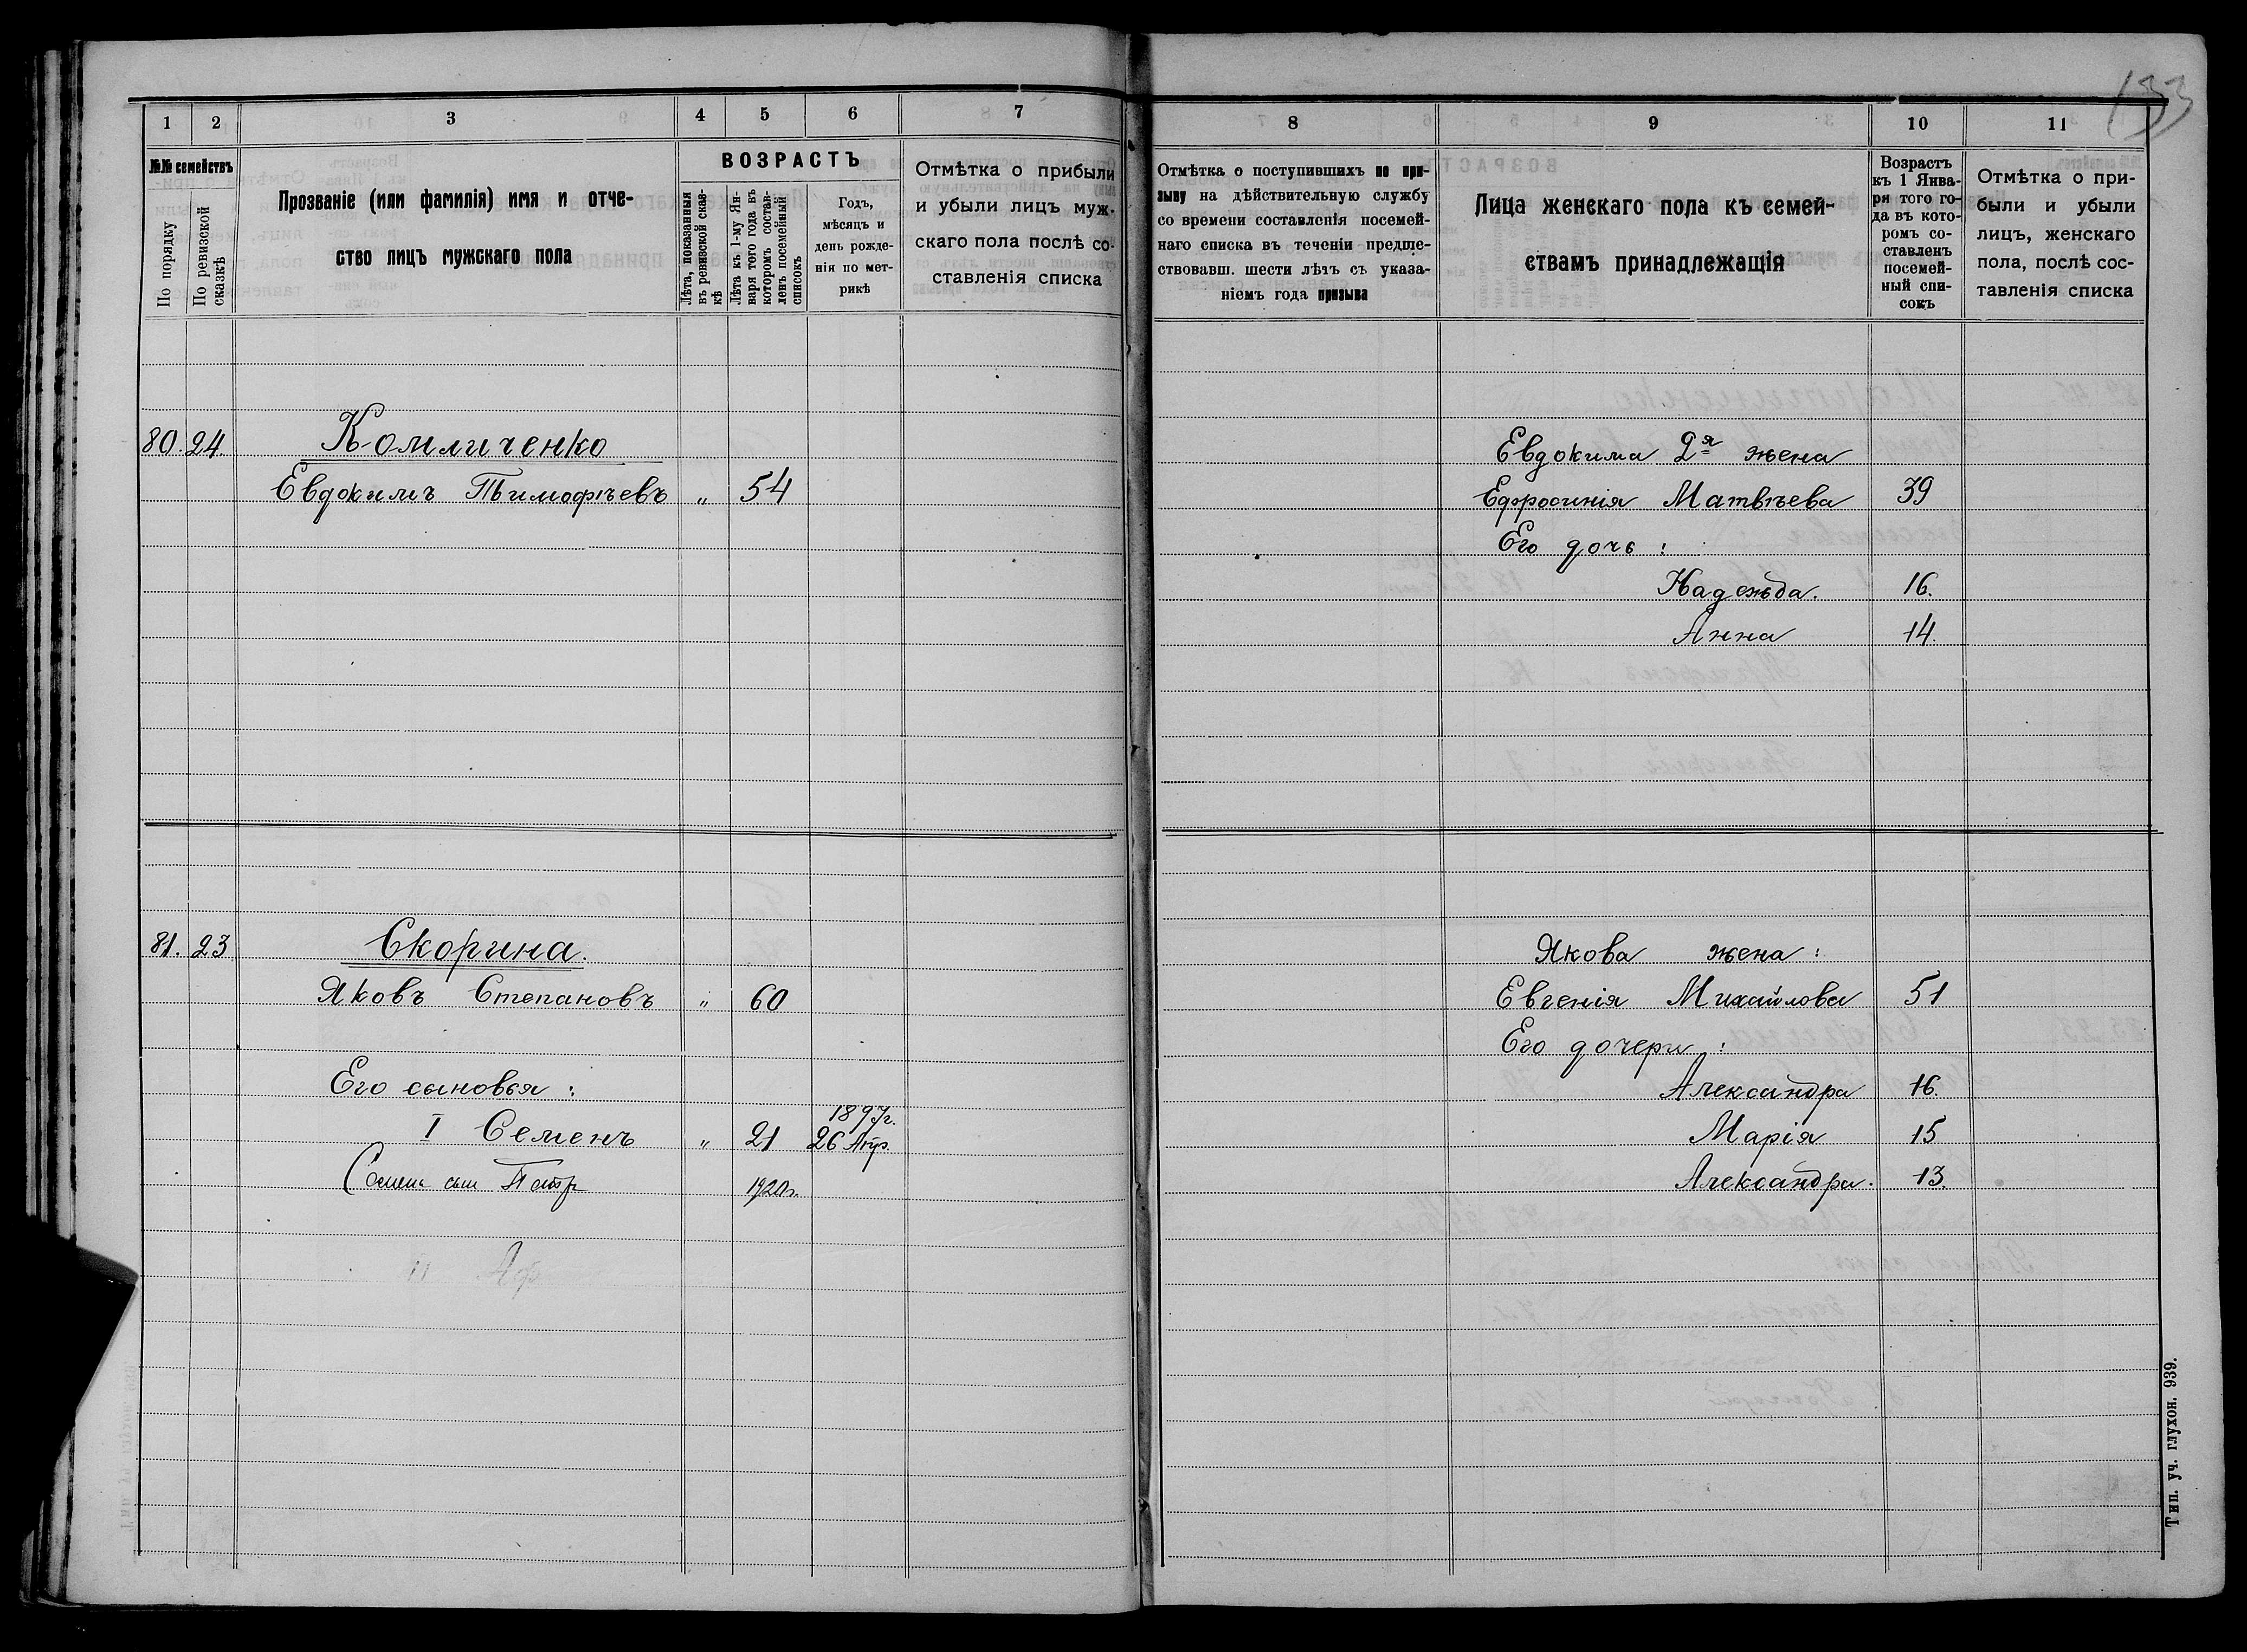 133
1 2 3 4 5 6 7
№№ семействъ
По порядку
По ревизской сказкѣ
Прозваніе (или фамилія) имя и отче-
ство лицъ мужскаго пола
ВОЗРАСТЪ
Лѣта, показанныя
въ ревизской сказ-
кѣ
Лѣта къ 1-му Ян-
варя того года въ
которомъ состав-
ленъ посемейный
списокъ
Годъ,
мѣсяцъ и
день рожде-
нія по мет-
рикѣ
Отмѣтка о прибыли
и убыли лицъ муж-
скаго пола послѣ со-
ставленія списка
80. 24. Комличенко
Евдокимъ Тимофѣевъ „ 54
81. 23 Скорина.
Яковъ Степановъ „ 60
Его сыновья :
1897г.
I Семенъ „ 21 26 Апр.
Семена сын Петр 1920г.
II Аф
8 9 10 11
Отмѣтка о поступившихъ по при-
зыву на дѣйствительную службу
со времени составленія посемей-
наго списка въ теченіи предше-
ствовавш. шести лѣтъ съ указа-
ніемъ года призыва
Лица женскаго пола къ семей-
ствамъ принадлежащія
Возрастъ
къ 1 Янва-
ря того го-
да въ кото-
ромъ со-
ставленъ
посемей-
ный спи-
сокъ
Отмѣтка о при-
были и убыли
лицъ, женскаго
пола, послѣ сос-
тавленія списка
Евдокима 2я жена
Ефросинія Матвѣева 39
Его дочь :
Надежда. 16.
Анна 14.
Якова жена :
Евгенія Михайлова 51
Его дочери :
Александра 16.
Марія 15
Александра. 13.
Тип. уч. глухон. 939.